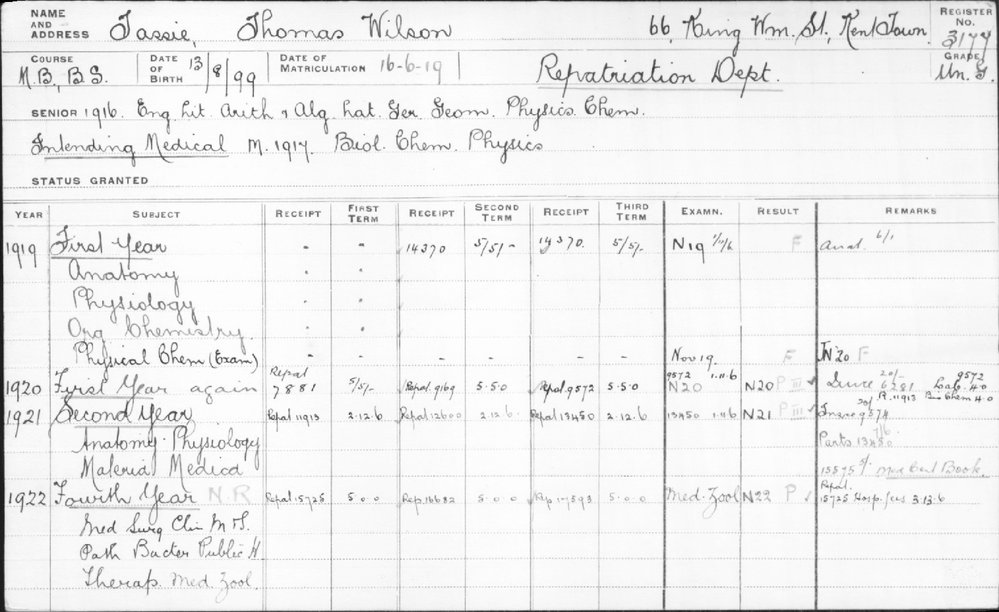 NAME AND ADDRESS Tassie, Thomas Wilson 66, King Wm. St, Kent Town. REGISTER NO. 3177
COURSE M.B., B.S. DATE OF BIRTH 13/8/99 DATE OF MATRICULATION 16-6-19 Repatriation Dept. GRADE Un. G.
SENIOR 1916. Eng. Lit. Arith & Alg. Lat. Ger. Geom. Physics. Chem.
Intending Medical M. 1917. Biol. Chem. Physics
STATUS GRANTED
YEAR SUBJECT RECEIPT FIRST TERM RECEIPT SECOND TERM RECEIPT THIRD TERM EXAMN. RESULT REMARKS
1919 First Year - - 14370 5/5/- 14370. 5/5/- N19 F Anat. 6/1
Anatomy
Physiology
Org Chemistry.
Physical Chem (Exam) - - - - - - Nov 19. F N'20 F
1920 First Year again Repat 7881 5/5/- Repat. 9169 5.5.0 Repat 9572 5.5.0 9572 1.11.6 N20 N20 P III ✓ 20/- 6281 9572 Lab. 40
R. 11913 Bio Chem 4.0
1921 Second Year Repat 11913 2.12.6 Repat 12600 2.12.6 Repat 13450 2.12.6 13450 1.11.6 N21 P III ✓ 9574
Anatomy Physiology Parts 13450 7/6
Materia Medica 15575 Med Cert Book.
1922 Fourth Year N.R Repat. 15725 5.0.0 Rep. 16682 5.0.0 Rep 17593 5.0.0 Med. Zool N22 P ✓ Repat. 15725 Hosp. fees 3.13.6
Med Surg Clin M & S.
Path Bacter Public H
Therap. Med. Zool.